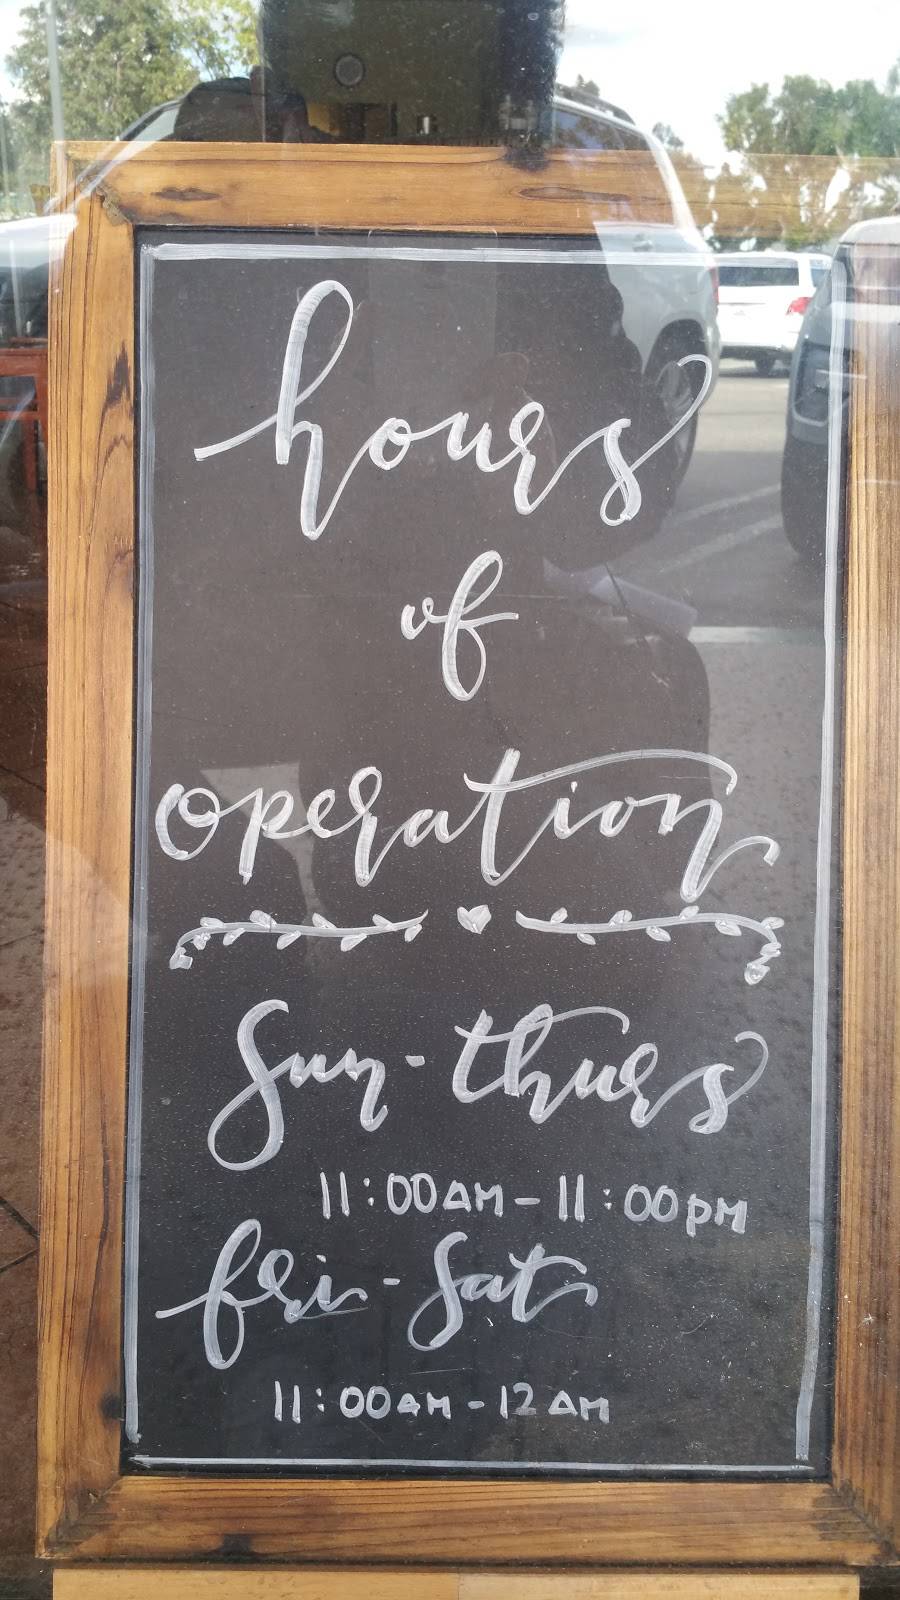 hours
of
operation
Sun-thurs
11:00AM-11:00pM
fri-Sat
11:00AM-12AM